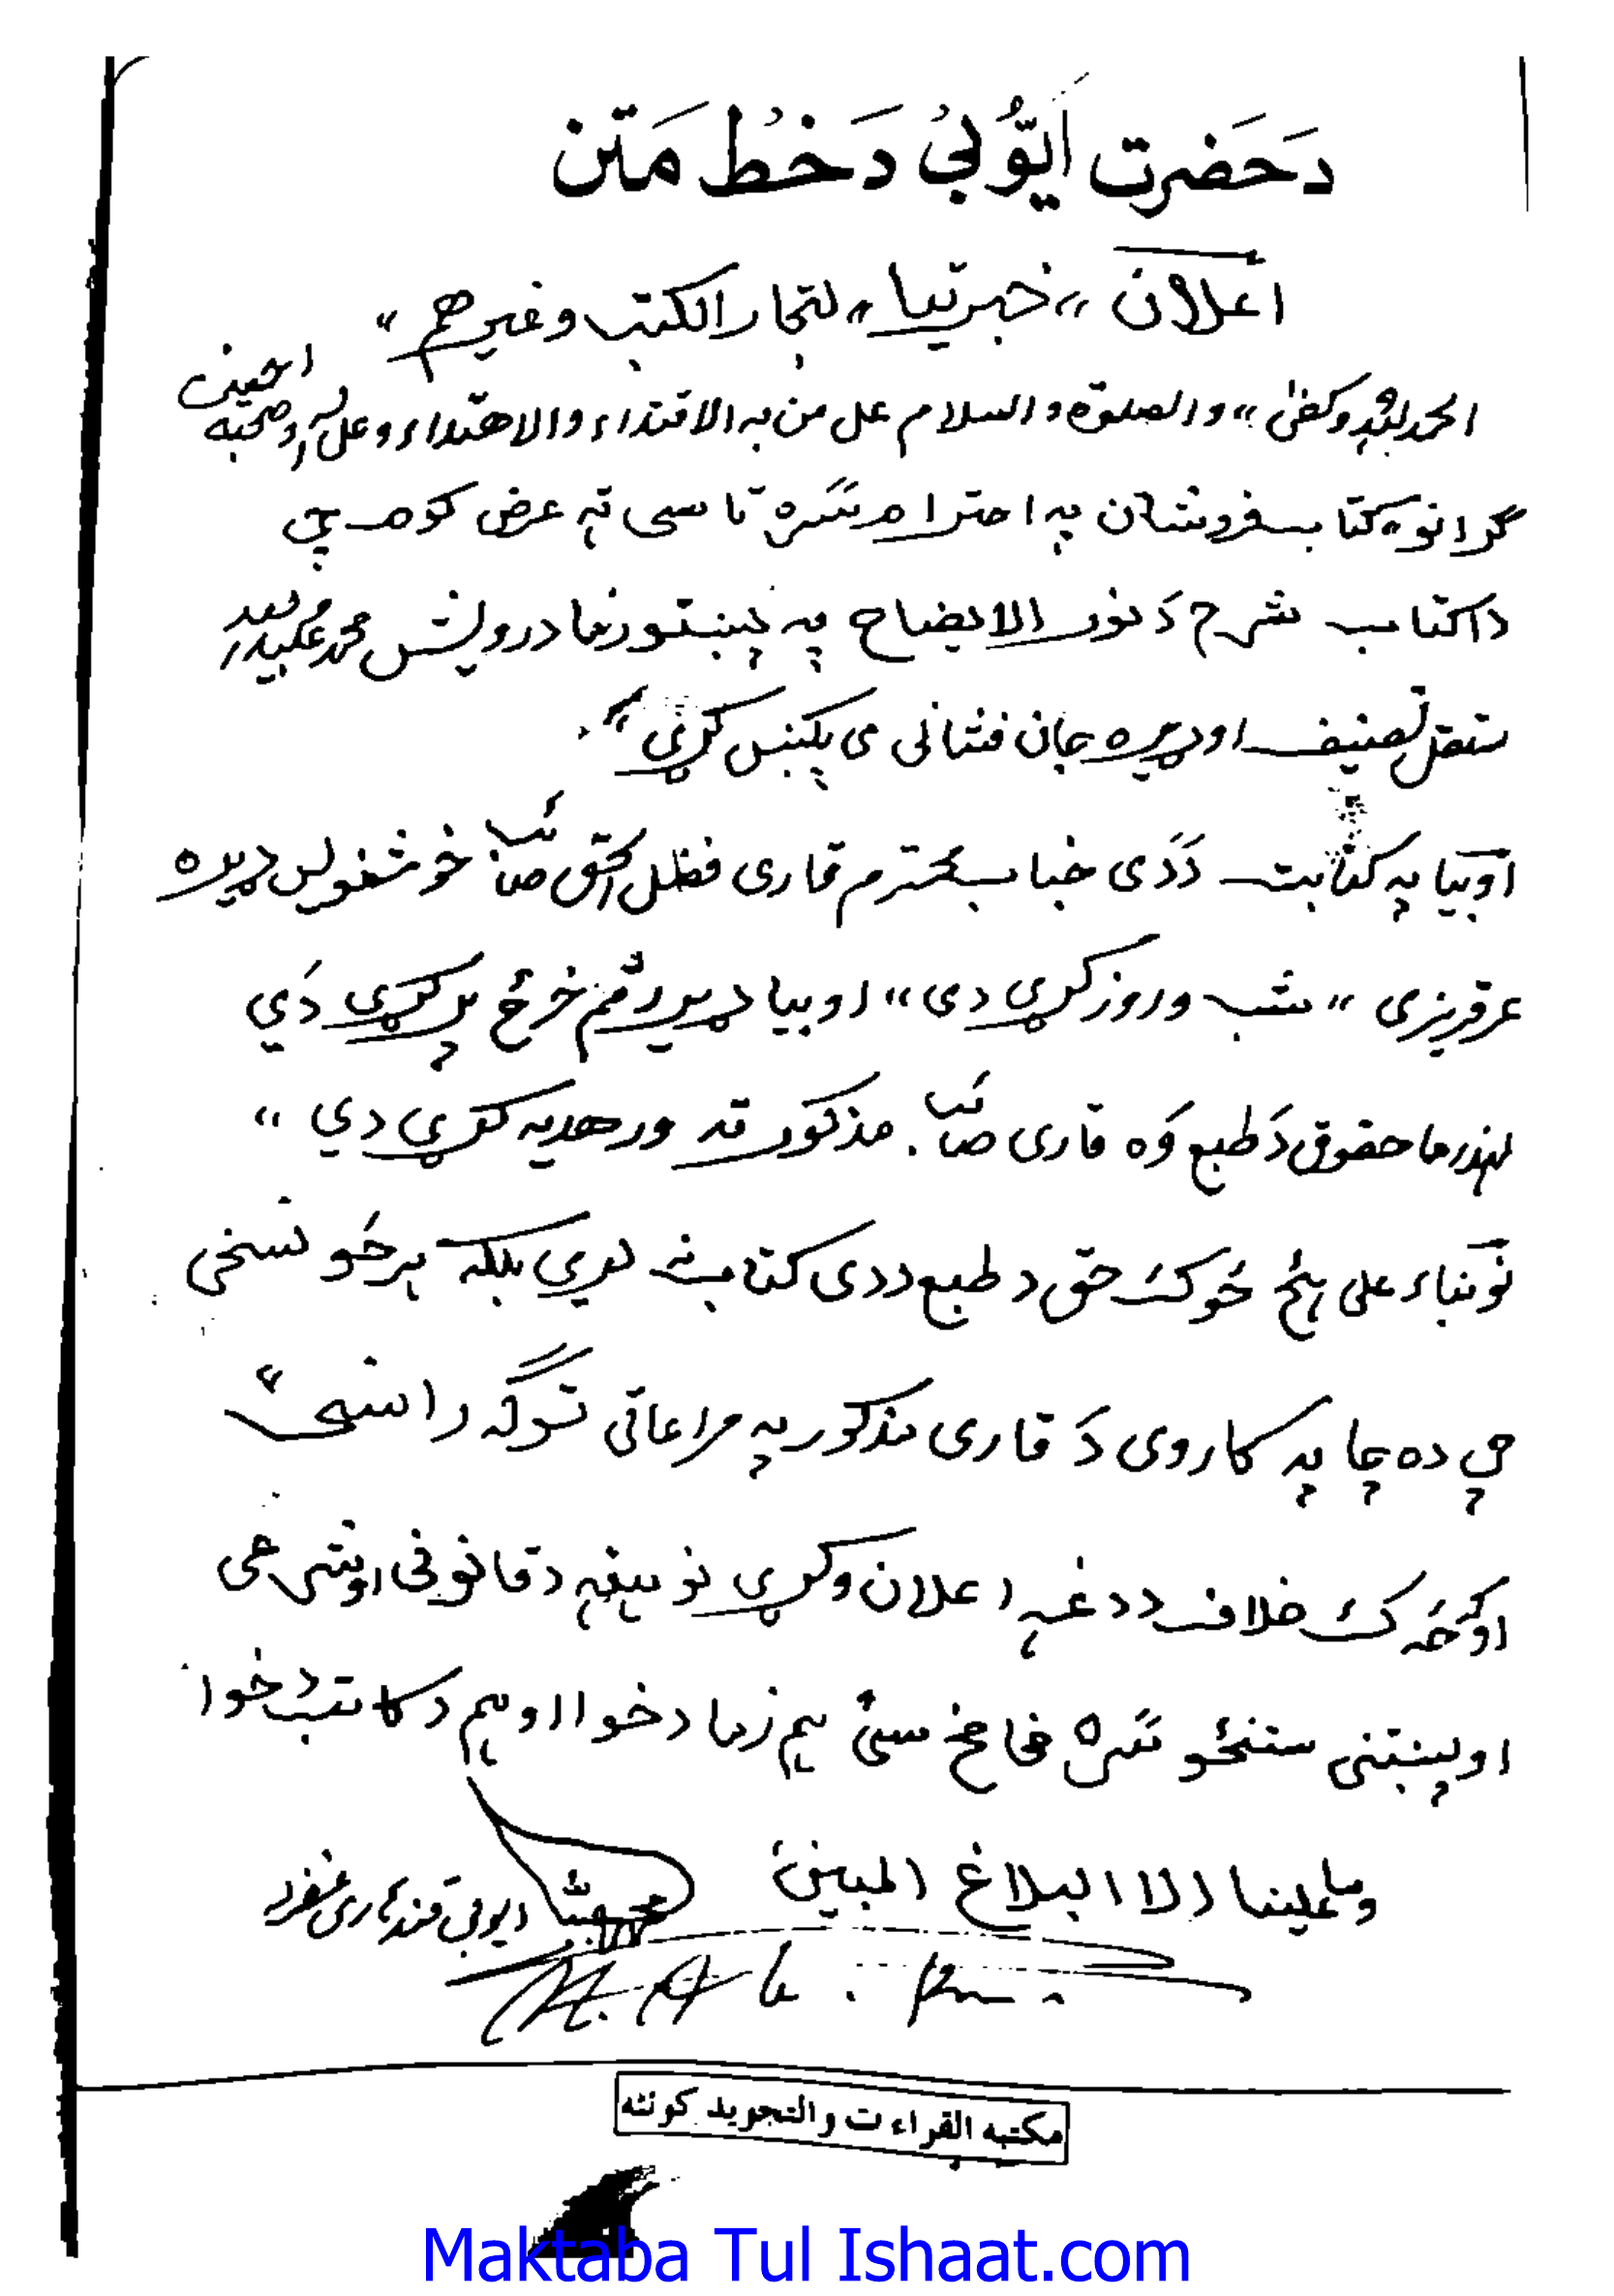 دَحَضرت اَیّوُبیْ دَخطْ مَتن
اعلان ،، خبرتیا ،، لتجار الکتب وغیرهم ،،
الحمد للہ وکفیٰ ،، والصلوة والسلام علی من بہ الاقتداء والاهتداء وعلی آلہ وصحبہ اجمعین
گرانو کتاب فروشان په احترام سره تاسی ته عرض کوم چي
داکتاب شرح دَ نور الایضاح په پښتو زما درویش محمد
مستقل تصنیف او ډیره جان فشانی می پکښس کړې ،،
اوبیا په کتابت دَدی جناب محترم قاری فضل الحق صاب خوشنویس ډیره
عرقریزی ،، شب وروز کړی دی ،، اوبیا ډیر رقم خرڅ پر کړی دَي
لهذا ما حقوق دَ طبع وَه قاری صاب مذکور ته ورهدیه کړی دي ،،
نو بناء علی هیڅ څوک حق د طبع ددی کتاب نه لري بلکه هر څو نسخی
چي ده چا په کاروی دَ قاری مذکور په مراعاتی توگه راسی ،،
او که څوک خلاف ددغه اعلان وکړی نو هغه د قانونی او شرعی
او پښتنی ستنځو سره مخامخ سیٔ هم زما دخوا او هم د کاتب دخوا
وما علینا الا البلاغ المبین
ایوبی قندهاری غفرله
مکتبه القراءت والتجوید کوئٹه
Maktaba Tul Ishaat.com